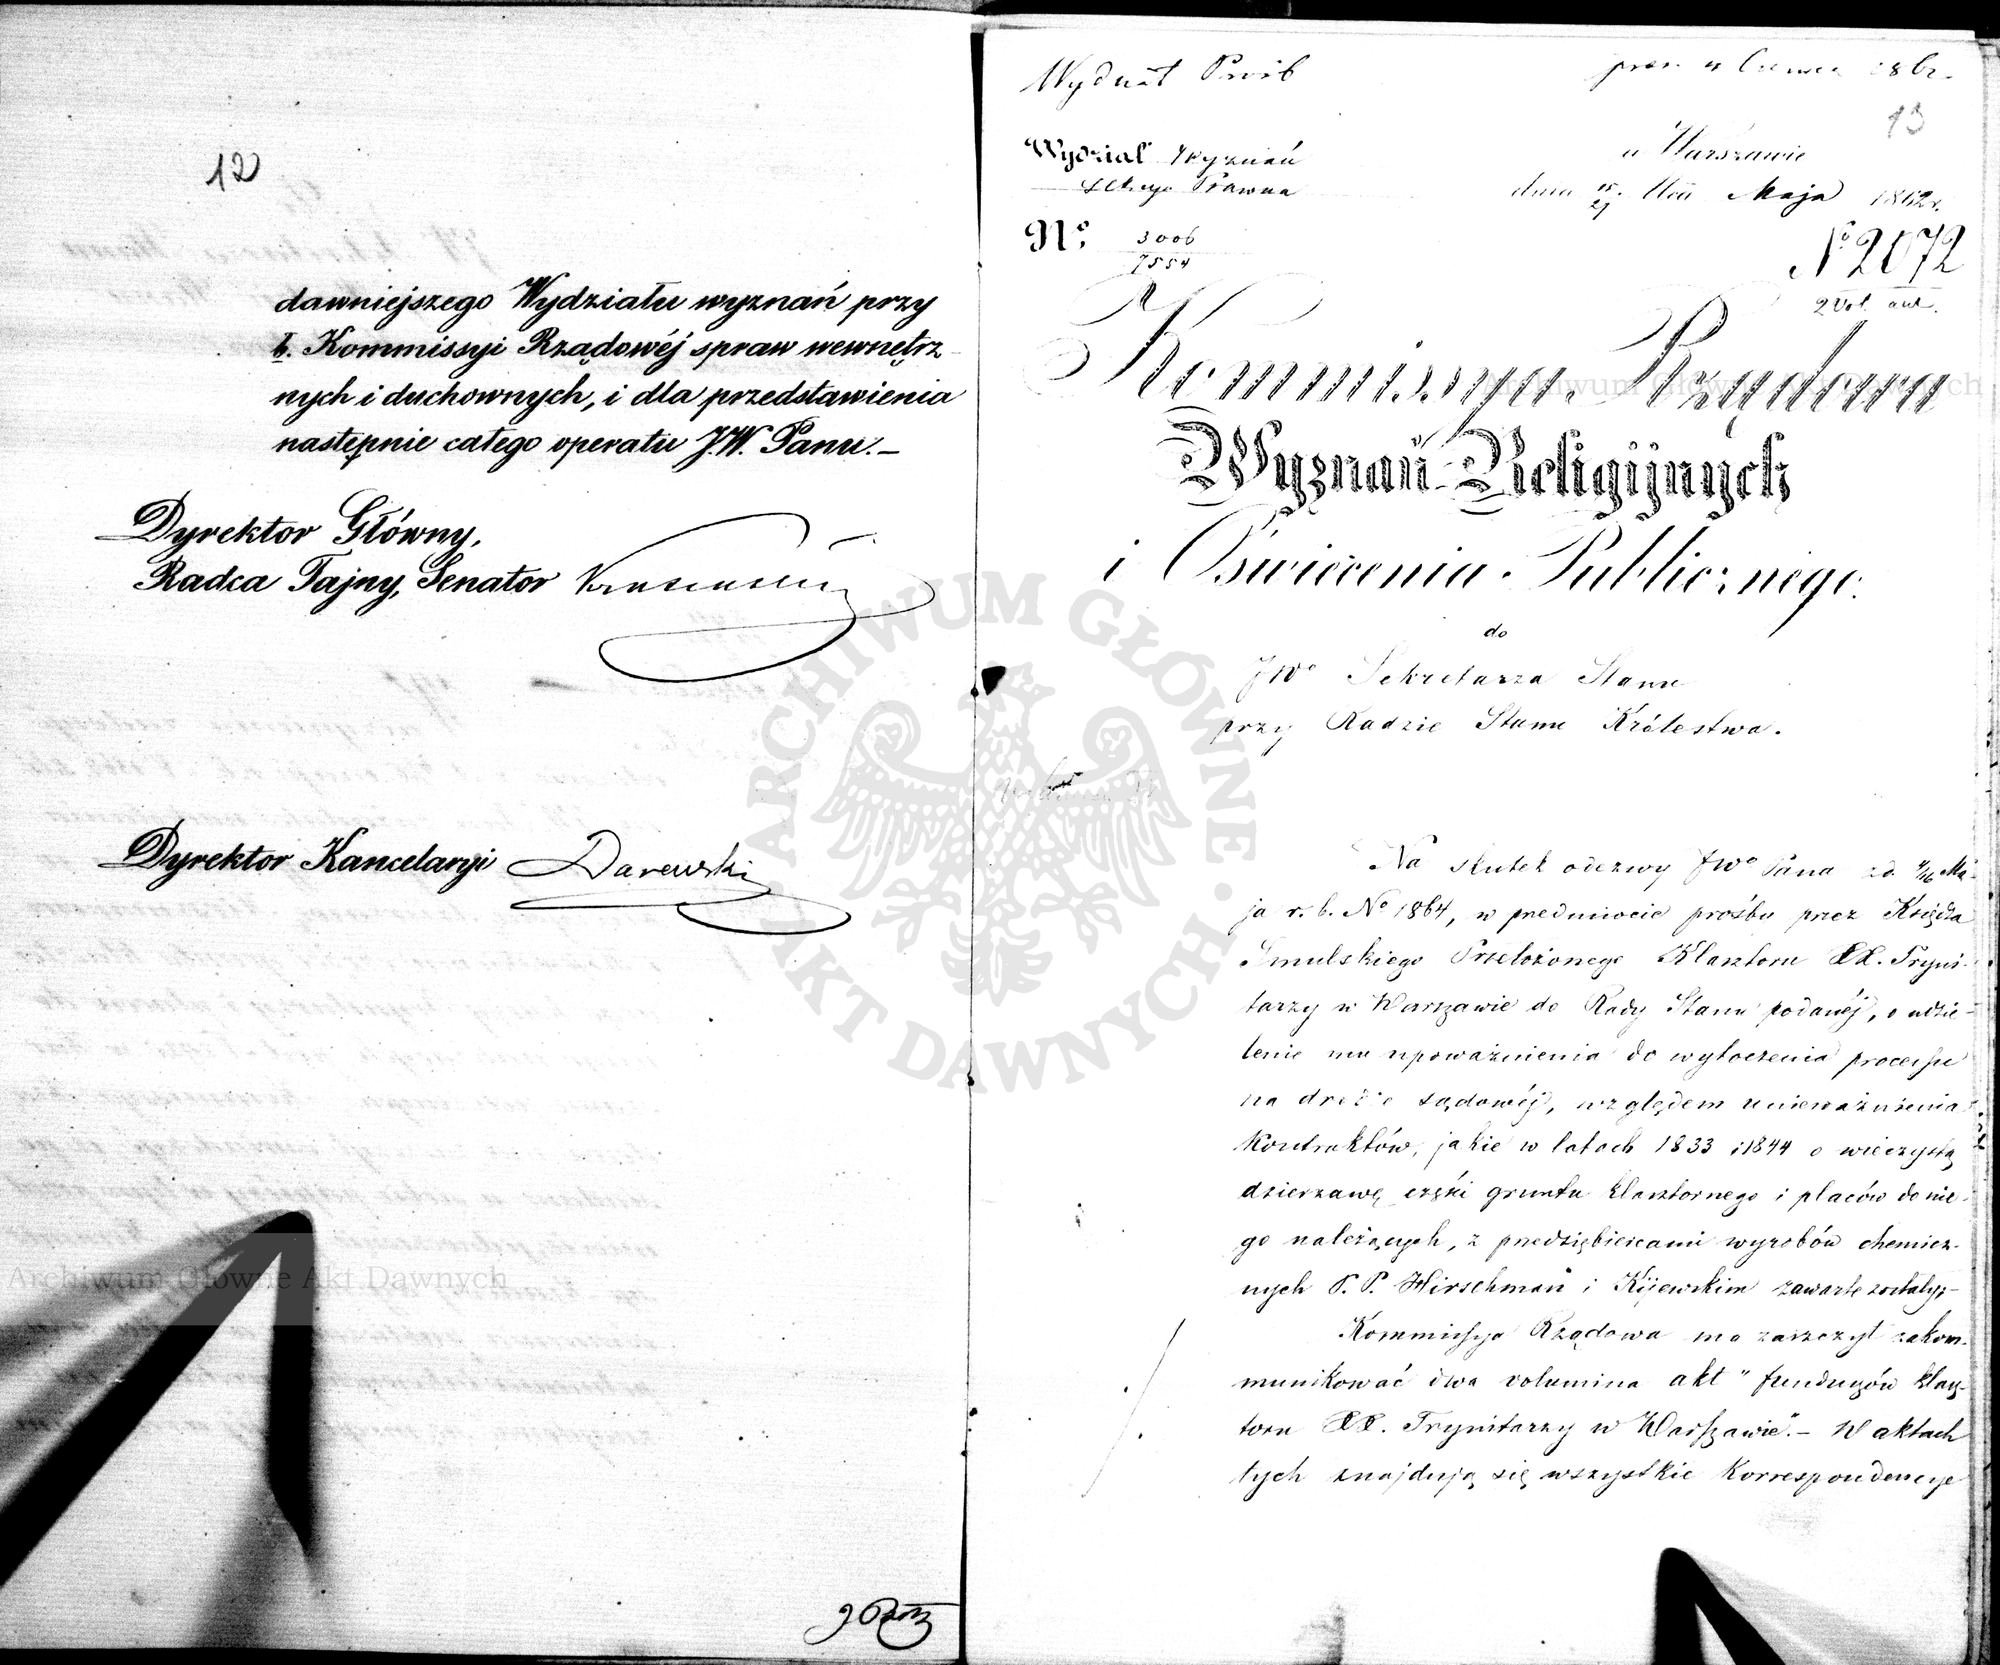 12
dawniejszego Wydziału wyznań przy
b. Kommissyi Rządowéj spraw wewnętrz
nych i duchownych, i dla przedstawienia
następnie całego operatu J.W. Panu.—
Dyrektor Główny,
Radca Tajny, Senator
Dyrektor Kancelaryi Darewski
Wydział Próśb
pres. 4 Czerwca 1862.
13
Wydział Wyznań
Sekcya Prawna
w Warszawie
dnia 15/27 Maja 1862 r.
No. 3006
7554
No 2072
2 Vol. akt.
Kommissya Rządowa
Wyznań Religijnych
i Oświecenia Publicznego.
do
JWo Sekretarza Stanu
przy Radzie Stanu Królestwa.
Na skutek odezwy JWo Pana z d. 4/16 Ma-
ja r. b. No 1864, w przedmiocie prośby przez Księdza
Smulskiego Przełożonego Klasztoru XX. Tryni-
tarzy w Warszawie do Rady Stanu podanéj, o udzie-
lenie mu upoważnienia do wytoczenia processu
na drodze sądowéj, względem unieważnienia
Kontraktów, jakie w latach 1833 i 1844 o wieczystą
dzierżawę części gruntu klasztornego i placów do nie-
go należących, z przedsiębiercami wyrobów chemicz-
nych P. P. Hirschman i Kijewskim zawarte zostały,—
Kommissya Rządowa ma zaszczyt zakom-
munikować dwa volumina akt "funduszów klasz-
toru XX. Trynitarzy w Warszawie".— W aktach
tych znajdują się wszystkie Korrespondencye
Archiwum Główne Akt Dawnych
Archiwum Główne Akt Dawnych
ARCHIWUM GŁÓWNE AKT DAWNYCH